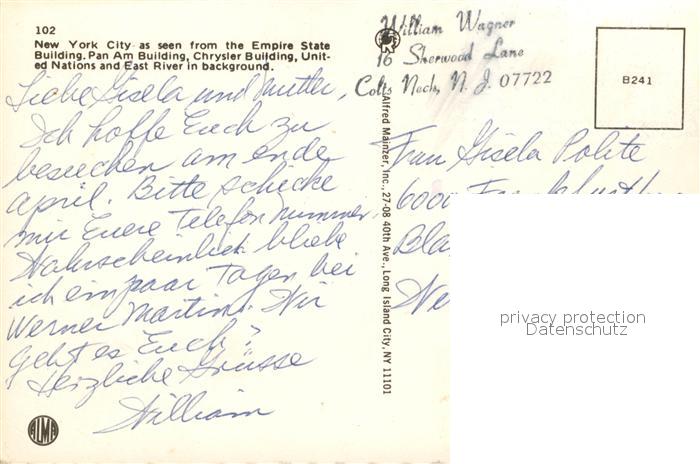 102
New York City as seen from the Empire State
Building. Pan Am Building, Chrysler Building, Unit-
ed Nations and East River in background.
William Wagner
16 Sherwood Lane
Colts Neck, N. J. 07722
B241
Liebe Gisela und Mutter,
Ich hoffe Euch zu
besuchen am ende
April. Bitte schicke
mir Euere Telefon nummer
Wahrscheinlich bleibe
ich ein paar Tagen bei
Werner Martini. Wir
geht es Euch?
Herzliche Grüsse
William
Alfred Mainzer, Inc., 27-08 40th Ave., Long Island City, NY 11101
Frau Gisela Polite
6000
privacy protection
Datenschutz
ALMA